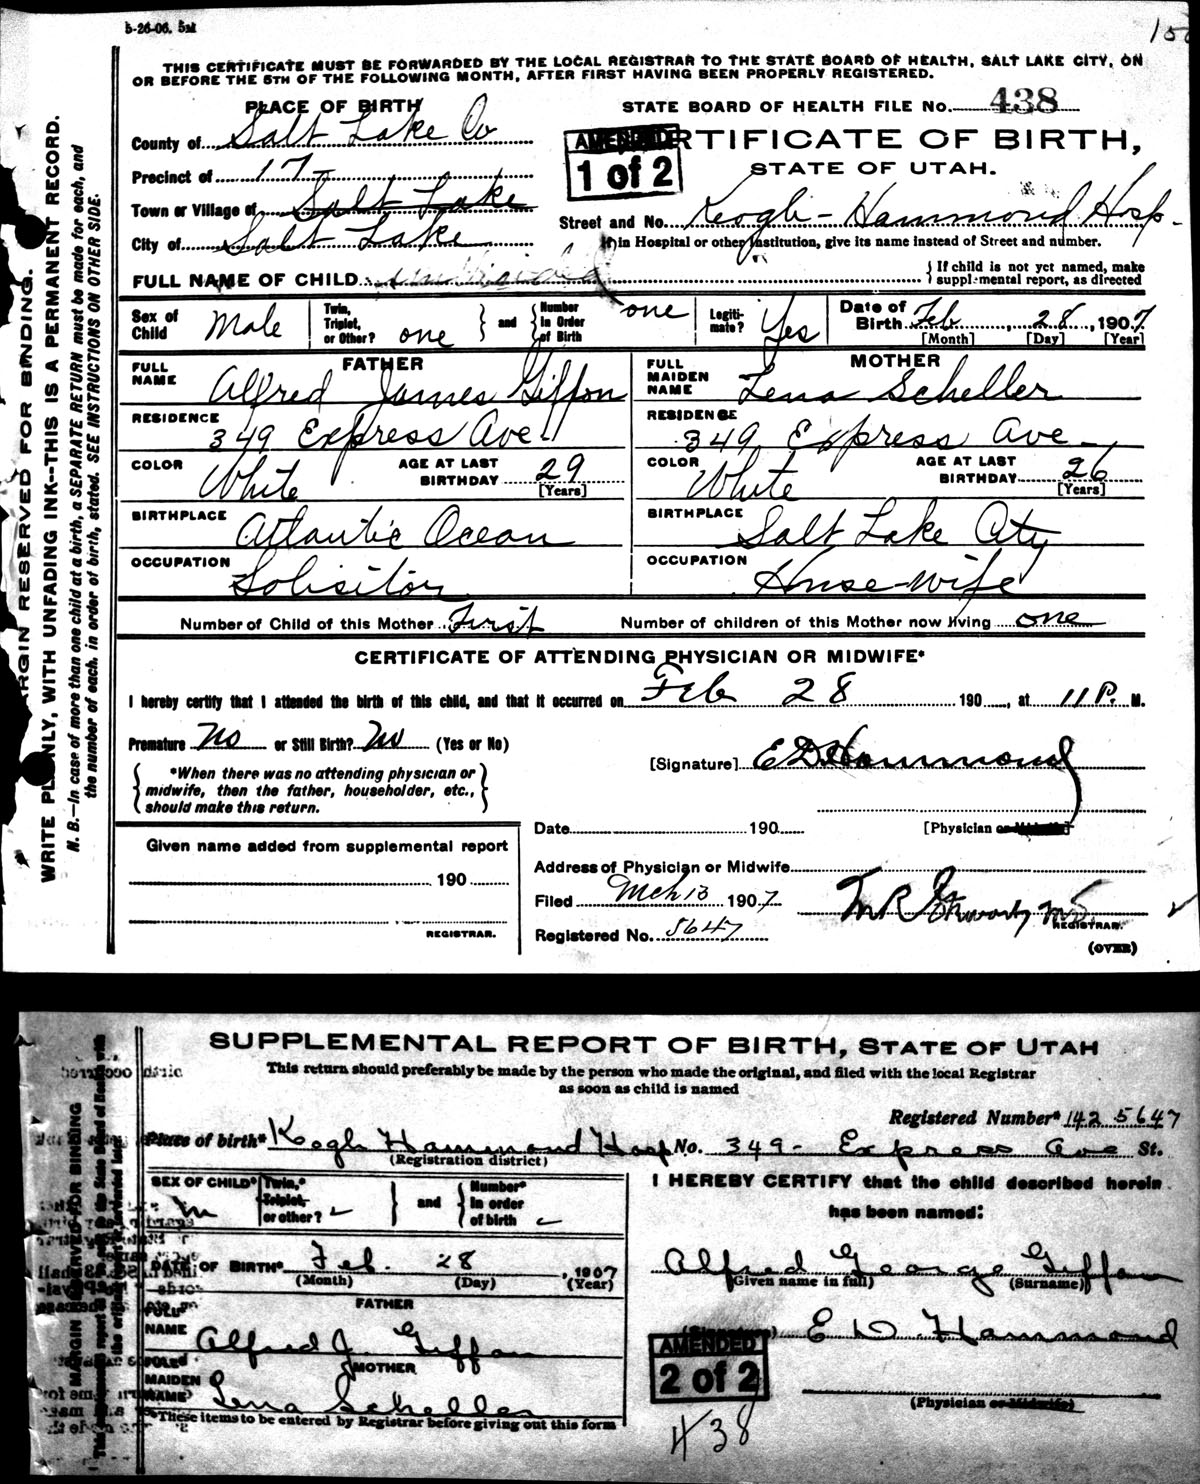 5-26-06. 5M
THIS CERTIFICATE MUST BE FORWARDED BY THE LOCAL REGISTRAR TO THE STATE BOARD OF HEALTH, SALT LAKE CITY, ON
OR BEFORE THE 5TH OF THE FOLLOWING MONTH, AFTER FIRST HAVING BEEN PROPERLY REGISTERED.
PLACE OF BIRTH
STATE BOARD OF HEALTH FILE No. 438
County of Salt Lake Co
AMENDED
1 of 2
CERTIFICATE OF BIRTH,
STATE OF UTAH.
Precinct of 17
Town or Village of Salt Lake
City of Salt Lake
Street and No. Keogh-Hammond Hosp.
If in Hospital or other institution, give its name instead of Street and number.
FULL NAME OF CHILD
If child is not yet named, make
supplemental report, as directed
Sex of Child Male
Twin, Triplet, or Other? one and Number in Order of Birth one
Legitimate? Yes
Date of Birth Feb, 28, 1907
[Month] [Day] [Year]
FATHER MOTHER
FULL NAME Alfred James Giffon FULL MAIDEN NAME Lena Scheller
RESIDENCE 349 Express Ave. RESIDENCE 349 Express Ave
COLOR White AGE AT LAST BIRTHDAY 29 [Years] COLOR White AGE AT LAST BIRTHDAY 26 [Years]
BIRTHPLACE Atlantic Ocean BIRTHPLACE Salt Lake City
OCCUPATION Solisitor OCCUPATION House-wife
Number of Child of this Mother First Number of children of this Mother now living one
CERTIFICATE OF ATTENDING PHYSICIAN OR MIDWIFE*
I hereby certify that I attended the birth of this child, and that it occurred on Feb 28 190, at 11 P. M.
Premature No or Still Birth? No (Yes or No)
[Signature] E D Hammond
*When there was no attending physician or
midwife, then the father, householder, etc.,
should make this return.
Date 190 [Physician or Midwife]
Given name added from supplemental report
190
REGISTRAR.
Address of Physician or Midwife
Filed Mch 13 1907
REGISTRAR.
Registered No. 5647
(OVER)
MARGIN RESERVED FOR BINDING.
WRITE PLAINLY, WITH UNFADING INK--THIS IS A PERMANENT RECORD.
N. B.—In case of more than one child at a birth, a SEPARATE RETURN must be made for each, and
the number of each, in order of birth, stated. SEE INSTRUCTIONS ON OTHER SIDE.
SUPPLEMENTAL REPORT OF BIRTH, STATE OF UTAH
This return should preferably be made by the person who made the original, and filed with the local Registrar
as soon as child is named
Registered Number* 142 5647
Place of birth* Keogh Hammond Hosp No. 349- Express Ave St.
(Registration district)
SEX OF CHILD* M
Twin,* Triplet, or other? and Number* in order of birth
I HEREBY CERTIFY that the child described herein
has been named:
DATE OF BIRTH* Feb. 28, 1907
(Month) (Day) (Year)
Alfred George Giffon
(Given name in full) (Surname)
FATHER
FULL NAME Alfred J. Giffon
E D Hammond
MOTHER
FULL MAIDEN NAME Lena Scheller
AMENDED
2 of 2
(Physician or Midwife)
*These items to be entered by Registrar before giving out this form
438
MARGIN RESERVED FOR BINDING